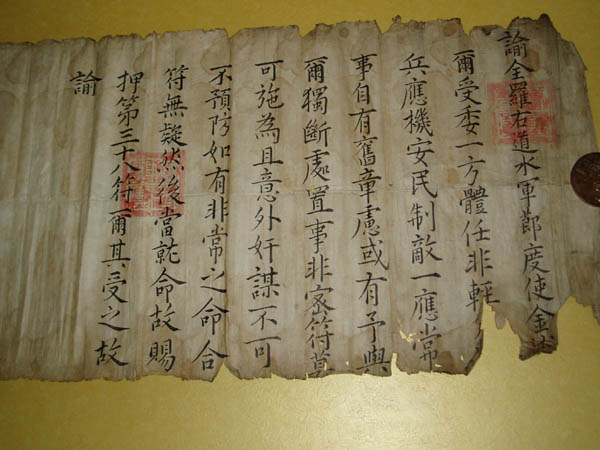 諭全羅右道水軍節度使金
爾受委一方體任非輕
兵應機安民制敵一應常
事自有舊章慮或有予與
爾獨斷處置事非密符莫
可施為且意外奸謀不可
不預防如有非常之命合
符無疑然後當就命故賜
押第三十八符爾其受之故
諭